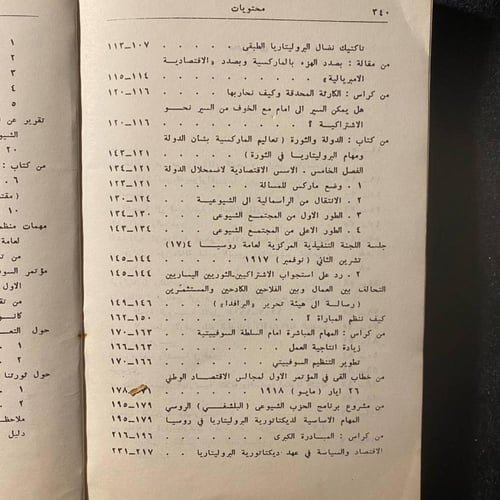 ٣٤٠
محتويات
تاكتيك نضال البروليتاريا الطبقى . . . . . ١٠٧ــ١١٣
من مقالة : بصدد الهزء بالماركسية وبصدد «الاقتصادية
الامبريالية» . . . . . . . . ١١٤ــ١١٥
من كراس : الكارثة المحدقة وكيف نحاربها . . . . ١١٦ــ١٢٠
هل يمكن السير الى امام مع الخوف من السير نحو
الاشتراكية ؟ . . . . . . . . ١١٦ــ١٢٠
من كتاب : الدولة والثورة (تعاليم الماركسية بشأن الدولة
ومهام البروليتاريا فى الثورة) . . . . . ١٢١ــ١٤٣
الفصل الخامس . الاسس الاقتصادية لاضمحلال الدولة ١٢١ــ١٣٤
١ . وضع ماركس للمسألة . . . . . ١٢١ــ١٢٣
٢ . الانتقال من الرأسمالية الى الشيوعية . . . ١٢٤ــ١٣٠
٣ . الطور الاول من المجتمع الشيوعى . . . ١٣٠ــ١٣٤
٤ . الطور الاعلى من المجتمع الشيوعى . . . ١٣٤ــ١٤٣
جلسة اللجنة التنفيذية المركزية لعامة روسيا ٤(١٧)
تشرين الثانى (نوفمبر) ١٩١٧ . . . . . ١٤٤ــ١٤٥
٢ . رد على استجواب الاشتراكيين-الثوريين اليساريين ١٤٤ــ١٤٥
التحالف بين العمال وبين الفلاحين الكادحين والمستثمَرين
(رسالة الى هيئة تحرير «البرافدا») . . . . ١٤٦ــ١٤٩
كيف ننظم المباراة ؟ . . . . . . . ١٥٠ــ١٦٢
من كراس : المهام المباشرة امام السلطة السوفييتية . ١٦٣ــ١٧٠
زيادة انتاجية العمل . . . . . . ١٦٣ــ١٦٦
تطوير التنظيم السوفييتى . . . . . ١٦٦ــ١٧٠
من خطاب القى فى المؤتمر الاول لمجالس الاقتصاد الوطنى
٢٦ ايار (مايو) ١٩١٨ . . . . . . ١٧١ــ١٧٨
من مشروع برنامج الحزب الشيوعى (البلشفى) الروسى ١٧٩ــ١٩٥
المهام الاساسية لديكتاتورية البروليتاريا فى روسيا ١٧٩ــ١٩٥
من كراس : المبادرة الكبرى . . . . . . ١٩٦ــ٢١٦
الاقتصاد والسياسة فى عهد ديكتاتورية البروليتاريا . . ٢١٧ــ٢٣١
١
٢
٣
٤
٥
تقرير عن
٢٠
من كتاب :
٦ .
١٠
مهمات منظم
لعامة
من تق
مؤتمر السوف
الاول
من تق
كانو
حول التعـ
١ .
٢ .
حول ثورتنا
١ .
٢ .
ملاحظـ
دليل